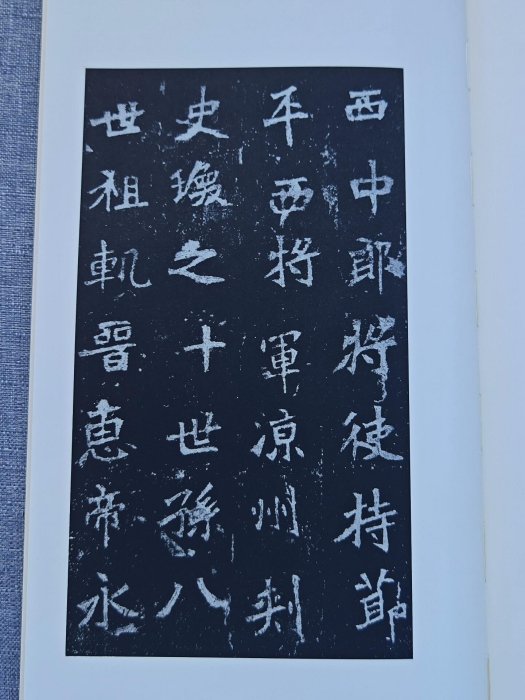 西中郎將使持節
平西將軍涼州刾
史瓊之十世孫八
世祖軌晉惠帝永